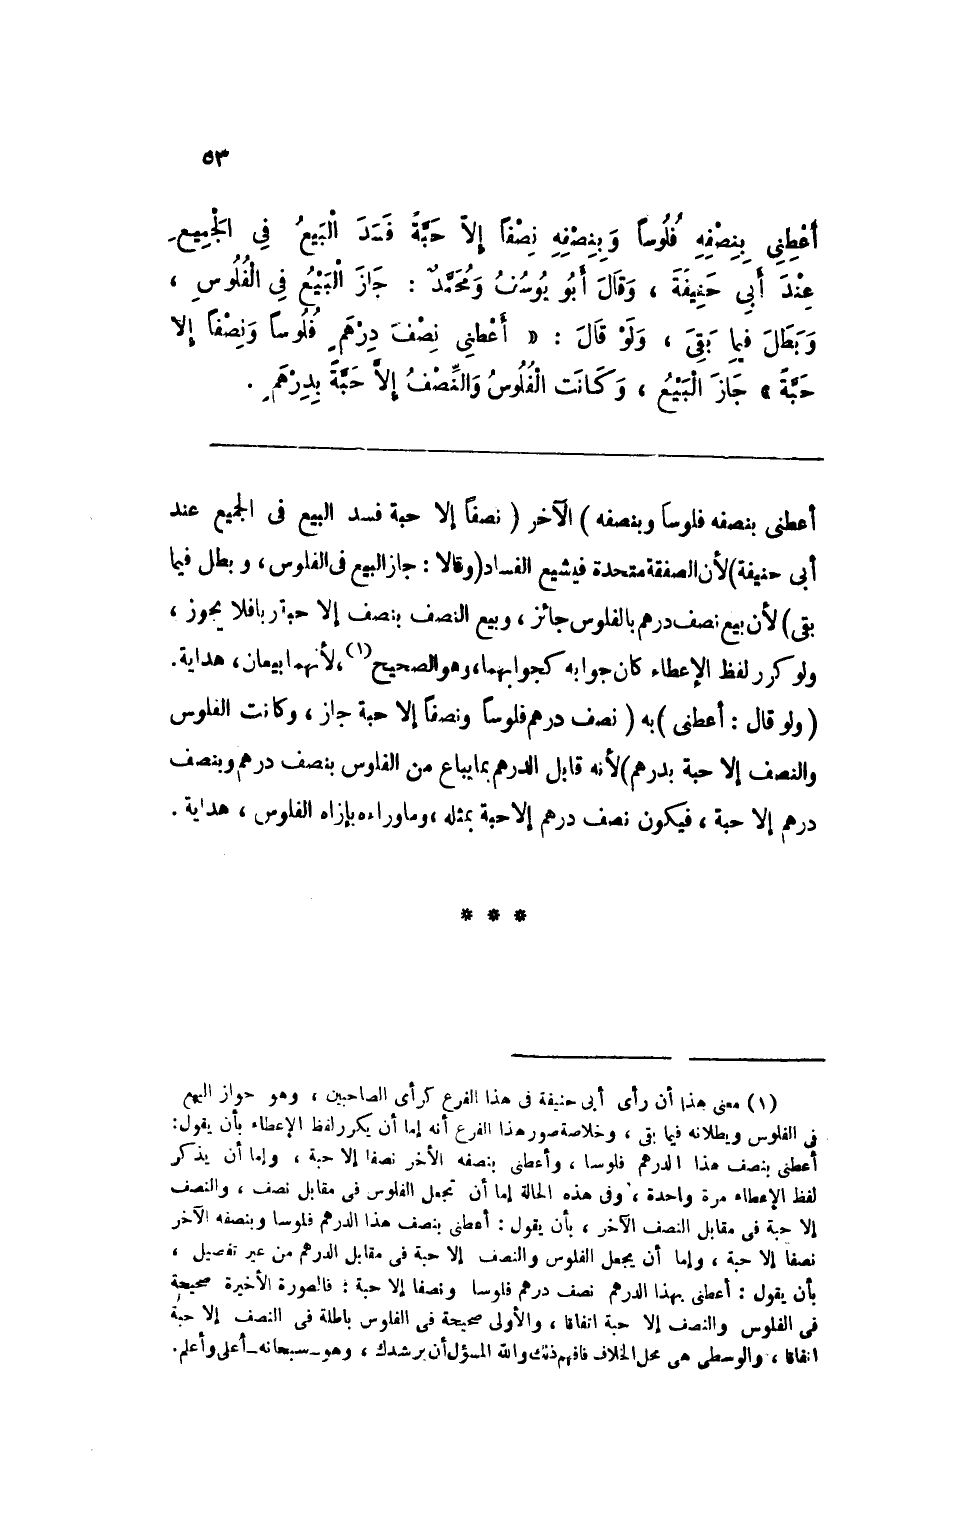 ٥٣
أَعْطِنِي بِنِصْفِهِ فُلُوساً وَبِنِصْفِهِ نِصْفاً إِلاَّ حَبَّةً فَسَدَ الْبَيْعُ فِي الْجَمِيعِ
عِنْدَ أَبِي حَنِيفَةَ ، وَقَالَ أَبُو يُوسُفُ وَمُحَمَّدٌ : جَازَ الْبَيْعُ فِي الْفُلُوسِ ،
وَبَطَلَ فِيمَا بَقِيَ ، وَلَوْ قَالَ : « أَعْطِنِي نِصْفَ دِرْهَمٍ فُلُوساً وَنِصْفاً إِلا
حَبَّةً » جَازَ الْبَيْعُ ، وَكَانَت الْفُلُوسُ وَالنِّصْفُ إِلاَّ حَبَّةً بِدِرْهَمٍ .
أعطنى بنصفه فلوساً وبنصفه ) الآخر ( نصفاً إلا حبة فسد البيع فى الجميع عند
أبى حنيفة)لأن الصفقة متحدة فيشيع الفساد(وقالا : جاز البيع فى الفلوس ، و بطل فيما
بقى) لأن بيع نصف درهم بالفلوس جائز ، وبيع النصف بنصف إلا حبة ربا فلا يجوز ،
ولو كرر لفظ الإعطاء كان جوابه كجوابهما، وهو الصحيح(١)، لأنهما بيعان، هداية.
(ولو قال : أعطنى )به ( نصف درهم فلوساً ونصفاً إلا حبة جاز ، وكانت الفلوس
والنصف إلا حبة بدرهم)لأنه قابل الدرهم بما يباع من الفلوس بنصف درهم وبنصف
درهم إلا حبة ، فيكون نصف درهم إلا حبة بمثله ، وما وراءه بإزاه الفلوس ، هداية .
* * *
(١) معنى هذا أن رأى أبى حنيفة فى هذا الفرع كرأى الصاحبين ، وهو جواز البيع
فى الفلوس وبطلانه فيما بقى ، وخلاصة صور هذا الفرع أنه إما أن يكرر لفظ الإعطاء بأن يقول:
أعطنى بنصف هذا الدرهم فلوسا ، وأعطنى بنصفه الأخر نصفا إلا حبة ، وإما أن يذكر
لفظ الإعطاء مرة واحدة ، وفى هذه الحالة إما أن تجعل الفلوس فى مقابل نصف ، والنصف
إلا حبة فى مقابل النصف الآخر ، بأن يقول : أعطنى بنصف هذا الدرهم فلوسا وبنصفه الآخر
نصفا إلا حبة ، وإما أن يجعل الفلوس والنصف إلا حبة فى مقابل الدرهم من غير تفصيل ،
بأن يقول : أعطنى بهذا الدرهم نصف درهم فلوسا ونصفا إلا حبة ؛ فالصورة الأخيرة صحيحة
فى الفلوس والنصف إلا حبة اتفاقا ، والأولى صحيحة فى الفلوس باطلة فى النصف إلا حبة
اتفاقا ، والوسطى هى محل الخلاف فافهم ذلك والله المسؤل أن يرشدك ، وهو ـ سبحانه ـ أعلى وأعلم.